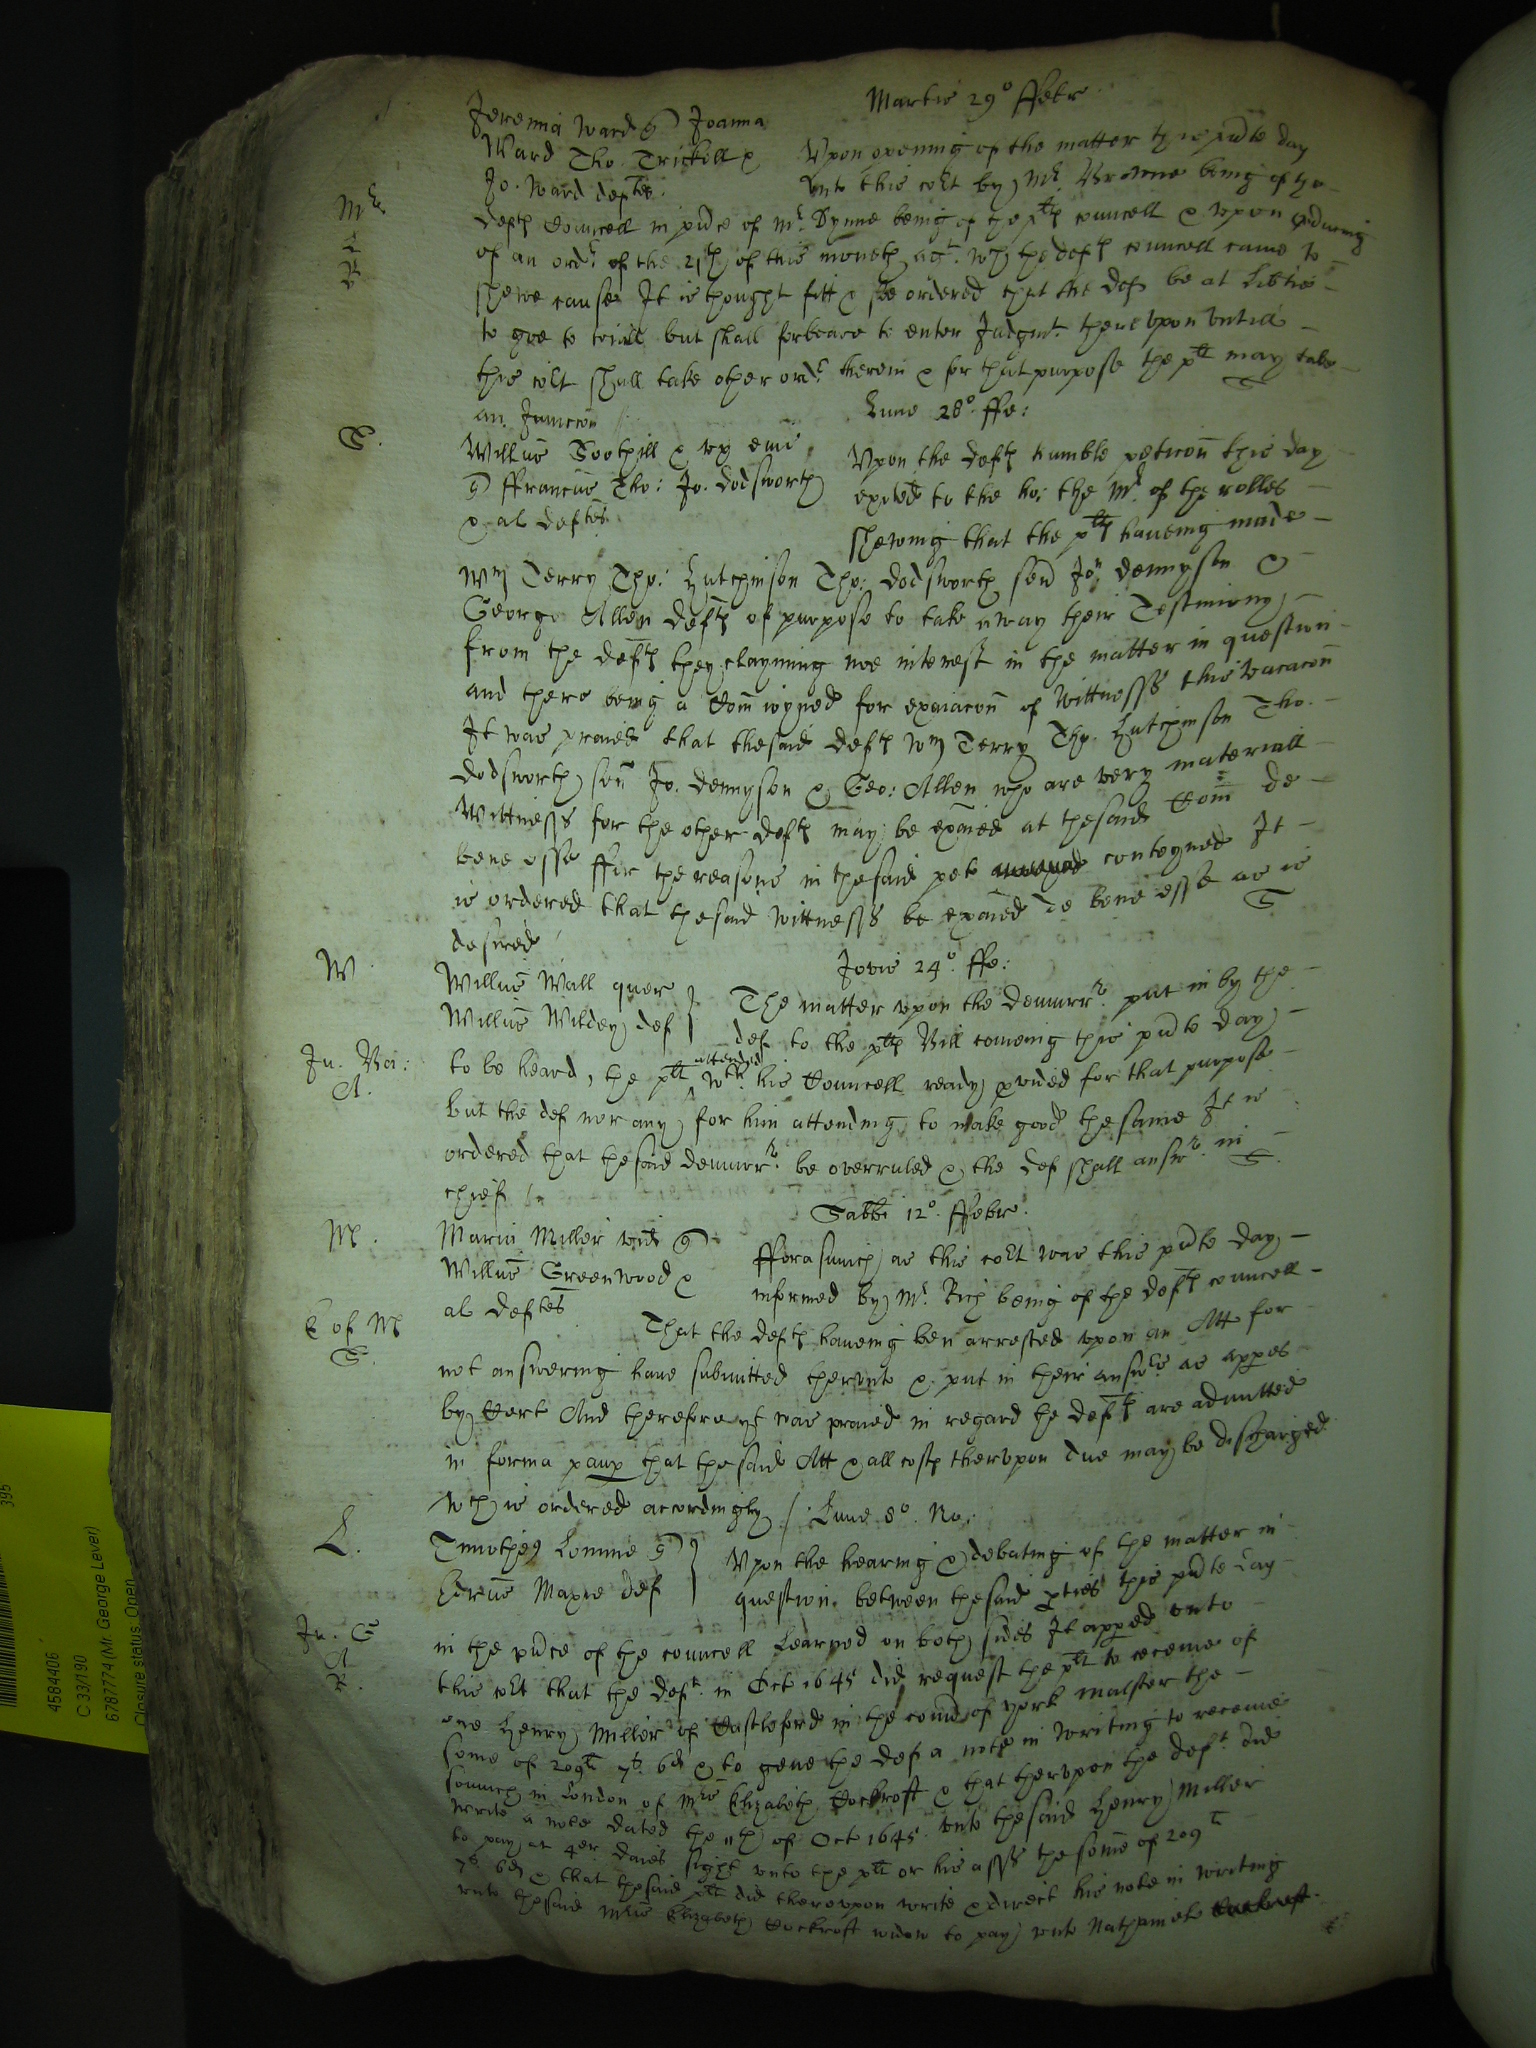 Martis 29° ffebr
Jeremia Ward q Joanna
Ward Tho. Trickett &
Jo. Ward deftes.
Upon opening of the matter this pnte day
unto this colt by Mr. Browne being of the
Mr
L
R
defts Councell in pnce of Mr. Dynne being of the plts councell & upon produceing
of an ordr. of the 21th of this moneth agt. wch the defts councell came to
shewe cause It is thought fitt & soe ordered that the def be at Libtie
to goe to triall but shall forbeare to enter Judgmt. thereupon untill
this colt shall take other ordr. therein & for that purpose the plt may take
an Junccon
G.
Lune 28°. ffe:
Willus Soothill & ux eius
q ffrancus Tho: Jo. Dodsworth
& al deftes
Upon the defts humble peticon this day
exhited to the ho: the Mr. of the rolles
shewing that the plts haveing made
Wm Terry Tho: Hutchinson Tho: Dodsworth sen Jon. Dennyson &
George Allen defts of purpose to take away their Testimony
from the defts they clayming noe interest in the matter in question
and there being a Com ioyned for exaiacon of wittnesss this vacacon
It was praied that thesaid defts Wm Terry Tho. Hutchinson Tho.
Dodsworth sen Jo. Dennyson & Geo: Allen who are very materiall
Wittnesss for the other defts may be exaied at thesaid Com de
bene esse ffor the reasons in thesaid pet conteyned It
is ordered that thesaid wittnesss be exaied de bene esse as is
desired
W.
Jovis 24°. ffe:
Willus Wall quer
Willus Wilden def
The matter upon the demurrr. put in by the
def to the plts Bill comeing this pnte day
Ju. Ba:
A.
to be heard, the plt attended wth his Councell ready pvided for that purpose
but the def nor any for him attending to make good thesame It is
ordered that thesaid demurrr. be overruled & the def shall answr. in
chief
M.
Sabbi 12°. ffebr.
Maria Miller vid q
Willus Greenwood &
al deftes
fforasmuch as this colt was this pnte day
informed by Mr. Rich being of the defts councell
E of M
G.
That the defts haveing ben arrested upon an Att for
not answering have submitted therunto & put in their answrs as appes
by Cert And therefore yt was praied in regard the defts are admitted
in forma paup that thesaid Att & all costs therupon due may be discharged
wch is ordered accordingly / Lune 8°. No.
L.
Timotheus Lomme q
Edrus Maxie def
Upon the hearing & debating of the matter in
question between thesaid pties this pnte day
Ju. G
A
R.
in the pnce of the councell Learned on both sides It apped unto
this colt that the deft. in Oct 1645 did request the plt to receeve of
one Henry Miller of Castleford in the coun of york malster the
some of 209li 7s. 6d & to geve the def a note in writing to receeve
somuch in London of Mris Elizabeth Cockroft & that therupon the deft. did
write a note dated the 11th of Oct 1645 unto thesaid Henry Miller
to pay at 4er daies sight unto the plt or his asss the some of 209li
7s 6d & that thesaid plt did thereupon write & direct his note in writing
unto thesaid Mris Elizabeth Cockroft widow to pay unto Nathaniell
395
4584406
C 33/190
6787774 (Mr. George Lever)
Closure status: Open